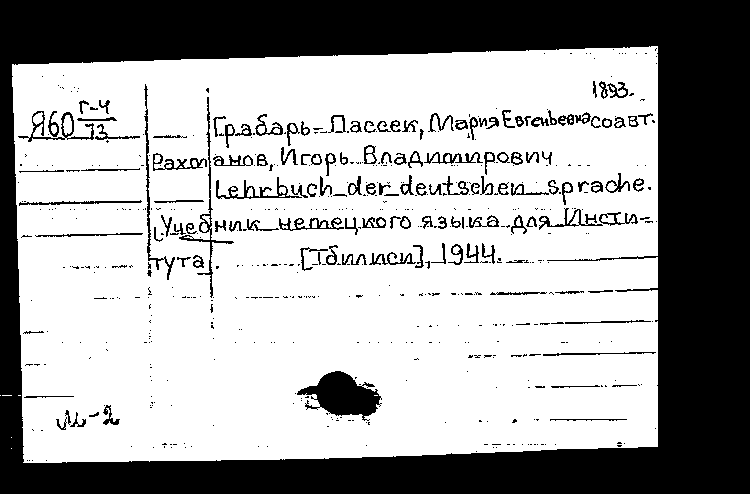 1893.
Я60 Г-4
73
Грабарь-Пассек, Мария Евгеньевна соавт.
Рахманов, Игорь Владимирович
Lehrbuch der deutschen sprache.
(Учебник немецкого языка для Инсти-
тута. [Тбилиси], 1944.
м-2